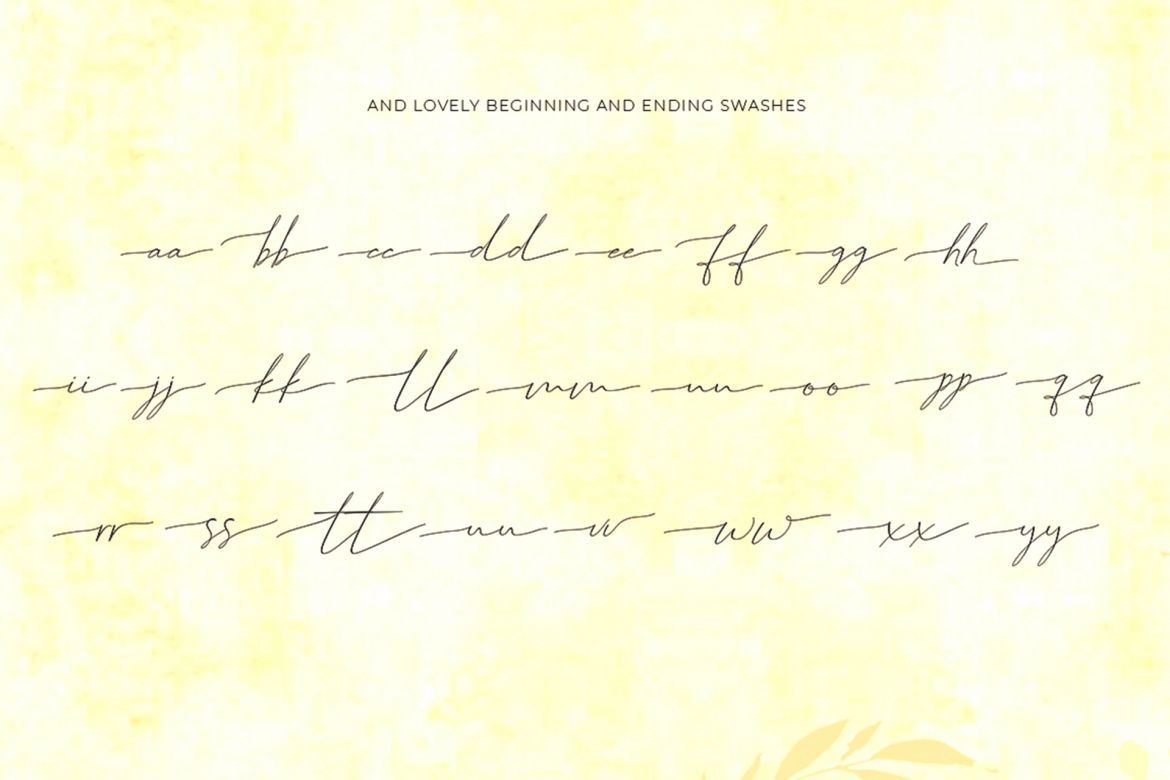 AND LOVELY BEGINNING AND ENDING SWASHES
aa bb cc dd ee ff gg hh
ii jj kk ll mm nn oo pp qq
rr ss tt uu vv ww xx yy